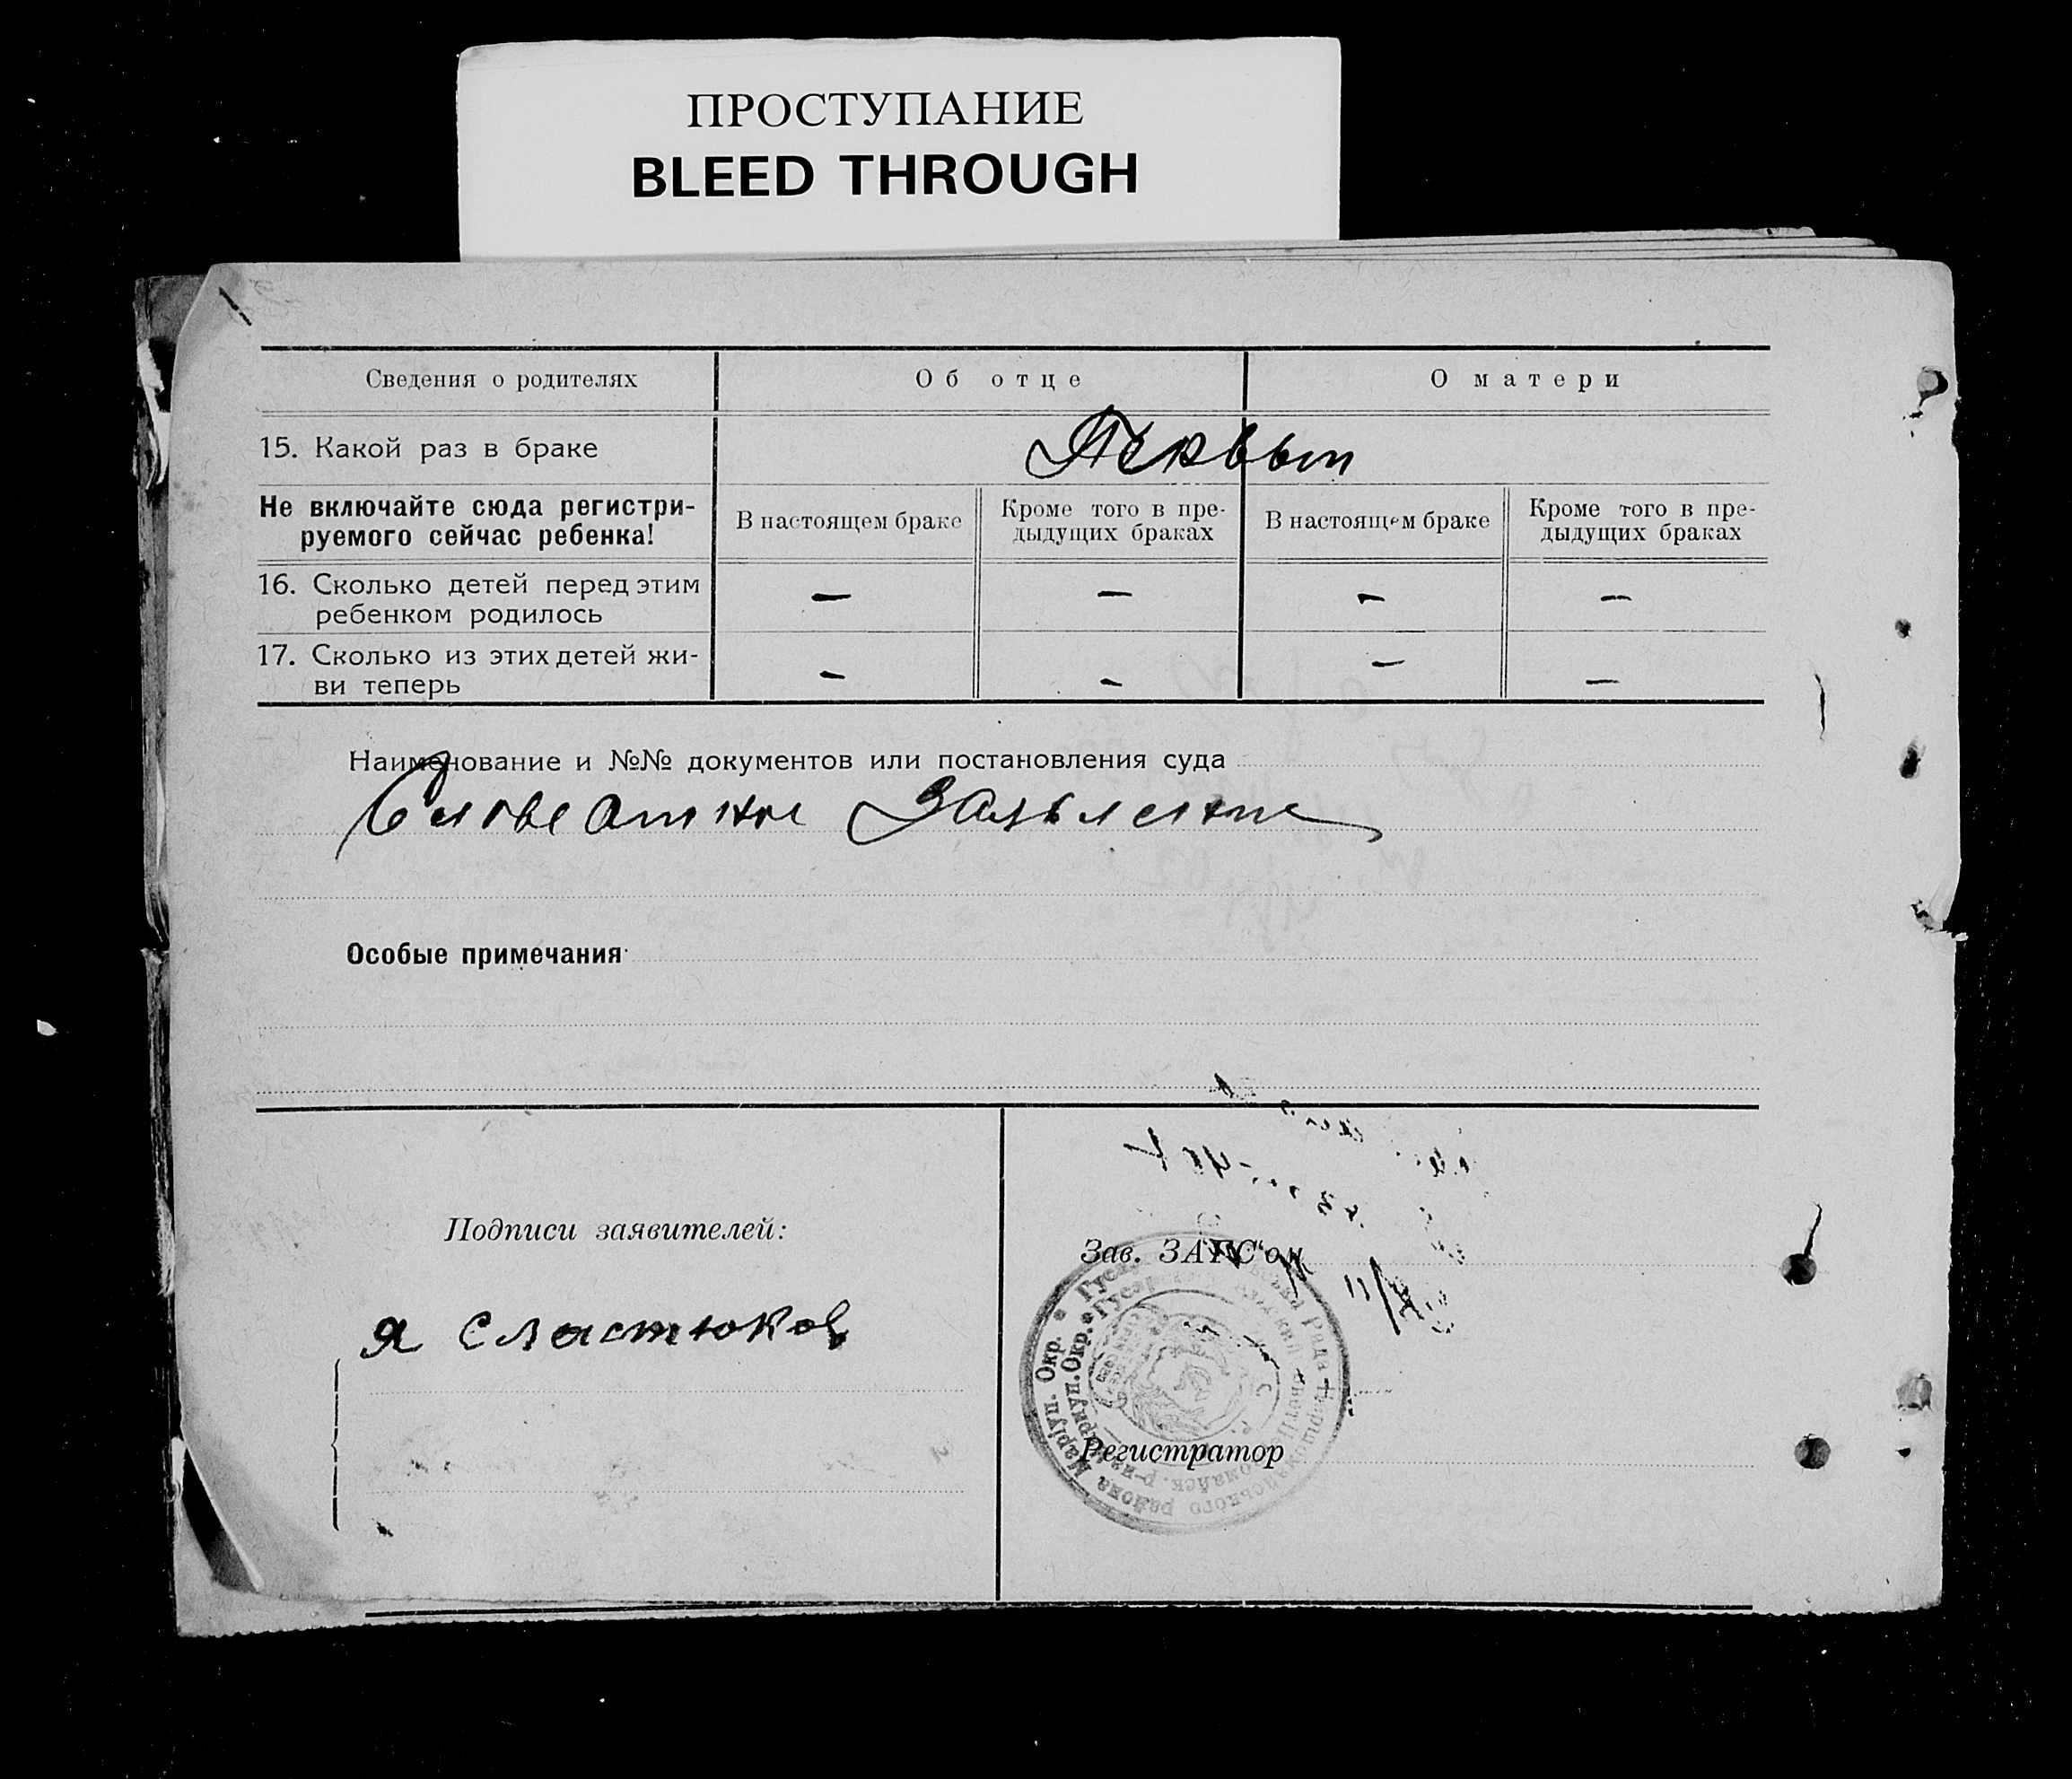 ПРОСТУПАНИЕ
BLEED THROUGH
Сведения о родителях Об отце О матери
15. Какой раз в браке Первый
Не включайте сюда регистри-
руемого сейчас ребенка!
В настоящем браке
Кроме того в пре-
дыдущих браках
В настоящем браке
Кроме того в пре-
дыдущих браках
16. Сколько детей перед этим
ребенком родилось — — — —
17. Сколько из этих детей жи-
ви теперь — — — —
Наименование и №№ документов или постановления суда
Словесное Заявление
Особые примечания
Подписи заявителей:
я Сластюков
Зав. ЗАГС'ом
Регистратор